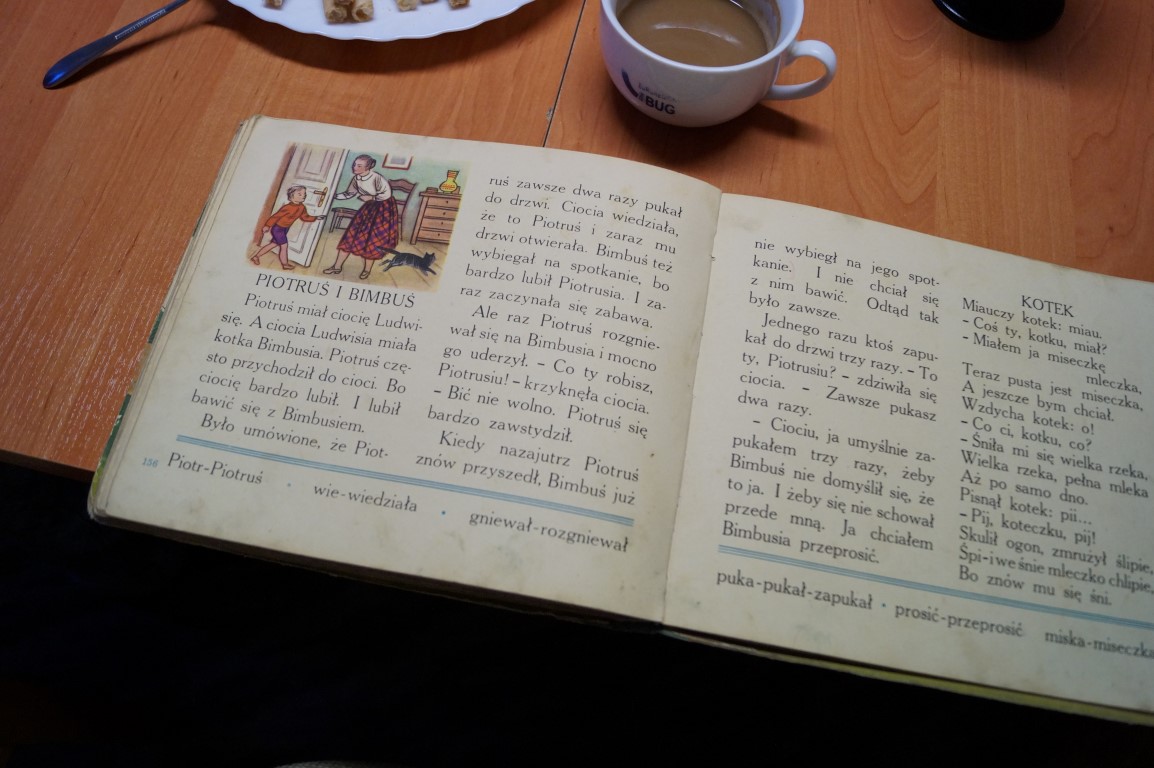 BUG
PIOTRUŚ I BIMBUŚ
Piotruś miał ciocię Ludwi-
się. A ciocia Ludwisia miała
kotka Bimbusia. Piotruś czę-
sto przychodził do cioci. Bo
ciocię bardzo lubił. I lubił
bawić się z Bimbusiem.
Było umówione, że Piot-
ruś zawsze dwa razy pukał
do drzwi. Ciocia wiedziała,
że to Piotruś i zaraz mu
drzwi otwierała. Bimbuś też
wybiegał na spotkanie, bo
bardzo lubił Piotrusia. I za-
raz zaczynała się zabawa.
Ale raz Piotruś rozgnie-
wał się na Bimbusia i mocno
go uderzył. – Co ty robisz,
Piotrusiu! – krzyknęła ciocia.
– Bić nie wolno. Piotruś się
bardzo zawstydził.
Kiedy nazajutrz Piotruś
znów przyszedł, Bimbuś już
156 Piotr-Piotruś • wie-wiedziała • gniewał-rozgniewał
nie wybiegł na jego spot-
kanie. I nie chciał się
z nim bawić. Odtąd tak
było zawsze.
Jednego razu ktoś zapu-
kał do drzwi trzy razy. – To
ty, Piotrusiu? – zdziwiła się
ciocia. – Zawsze pukasz
dwa razy.
– Ciociu, ja umyślnie za-
pukałem trzy razy, żeby
Bimbuś nie domyślił się, że
to ja. I żeby się nie schował
przede mną. Ja chciałem
Bimbusia przeprosić.
KOTEK
Miauczy kotek: miau.
– Coś ty, kotku, miał?
– Miałem ja miseczkę
mleczka,
Teraz pusta jest miseczka,
A jeszcze bym chciał.
Wzdycha kotek: o!
– Co ci, kotku, co?
– Śniła mi się wielka rzeka,
Wielka rzeka, pełna mleka
Aż po samo dno.
Pisnął kotek: pii...
– Pij, koteczku, pij!
Skulił ogon, zmrużył ślipie,
Śpi-i we śnie mleczko chlipie,
Bo znów mu się śni.
puka-pukał-zapukał • prosić-przeprosić miska-miseczka